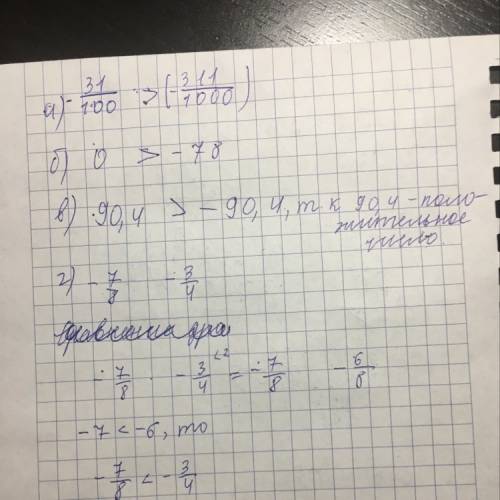 а) -31/100 > (-311/1000)
б) 0 > -78
в) 90,4 > -90,4, т к 90,4 - поло-
жительное
число
г) -7/8 -3/4
-7/8 -3/4 ^(×2 = -7/8 -6/8
-7 < -6, то
-7/8 < -3/4